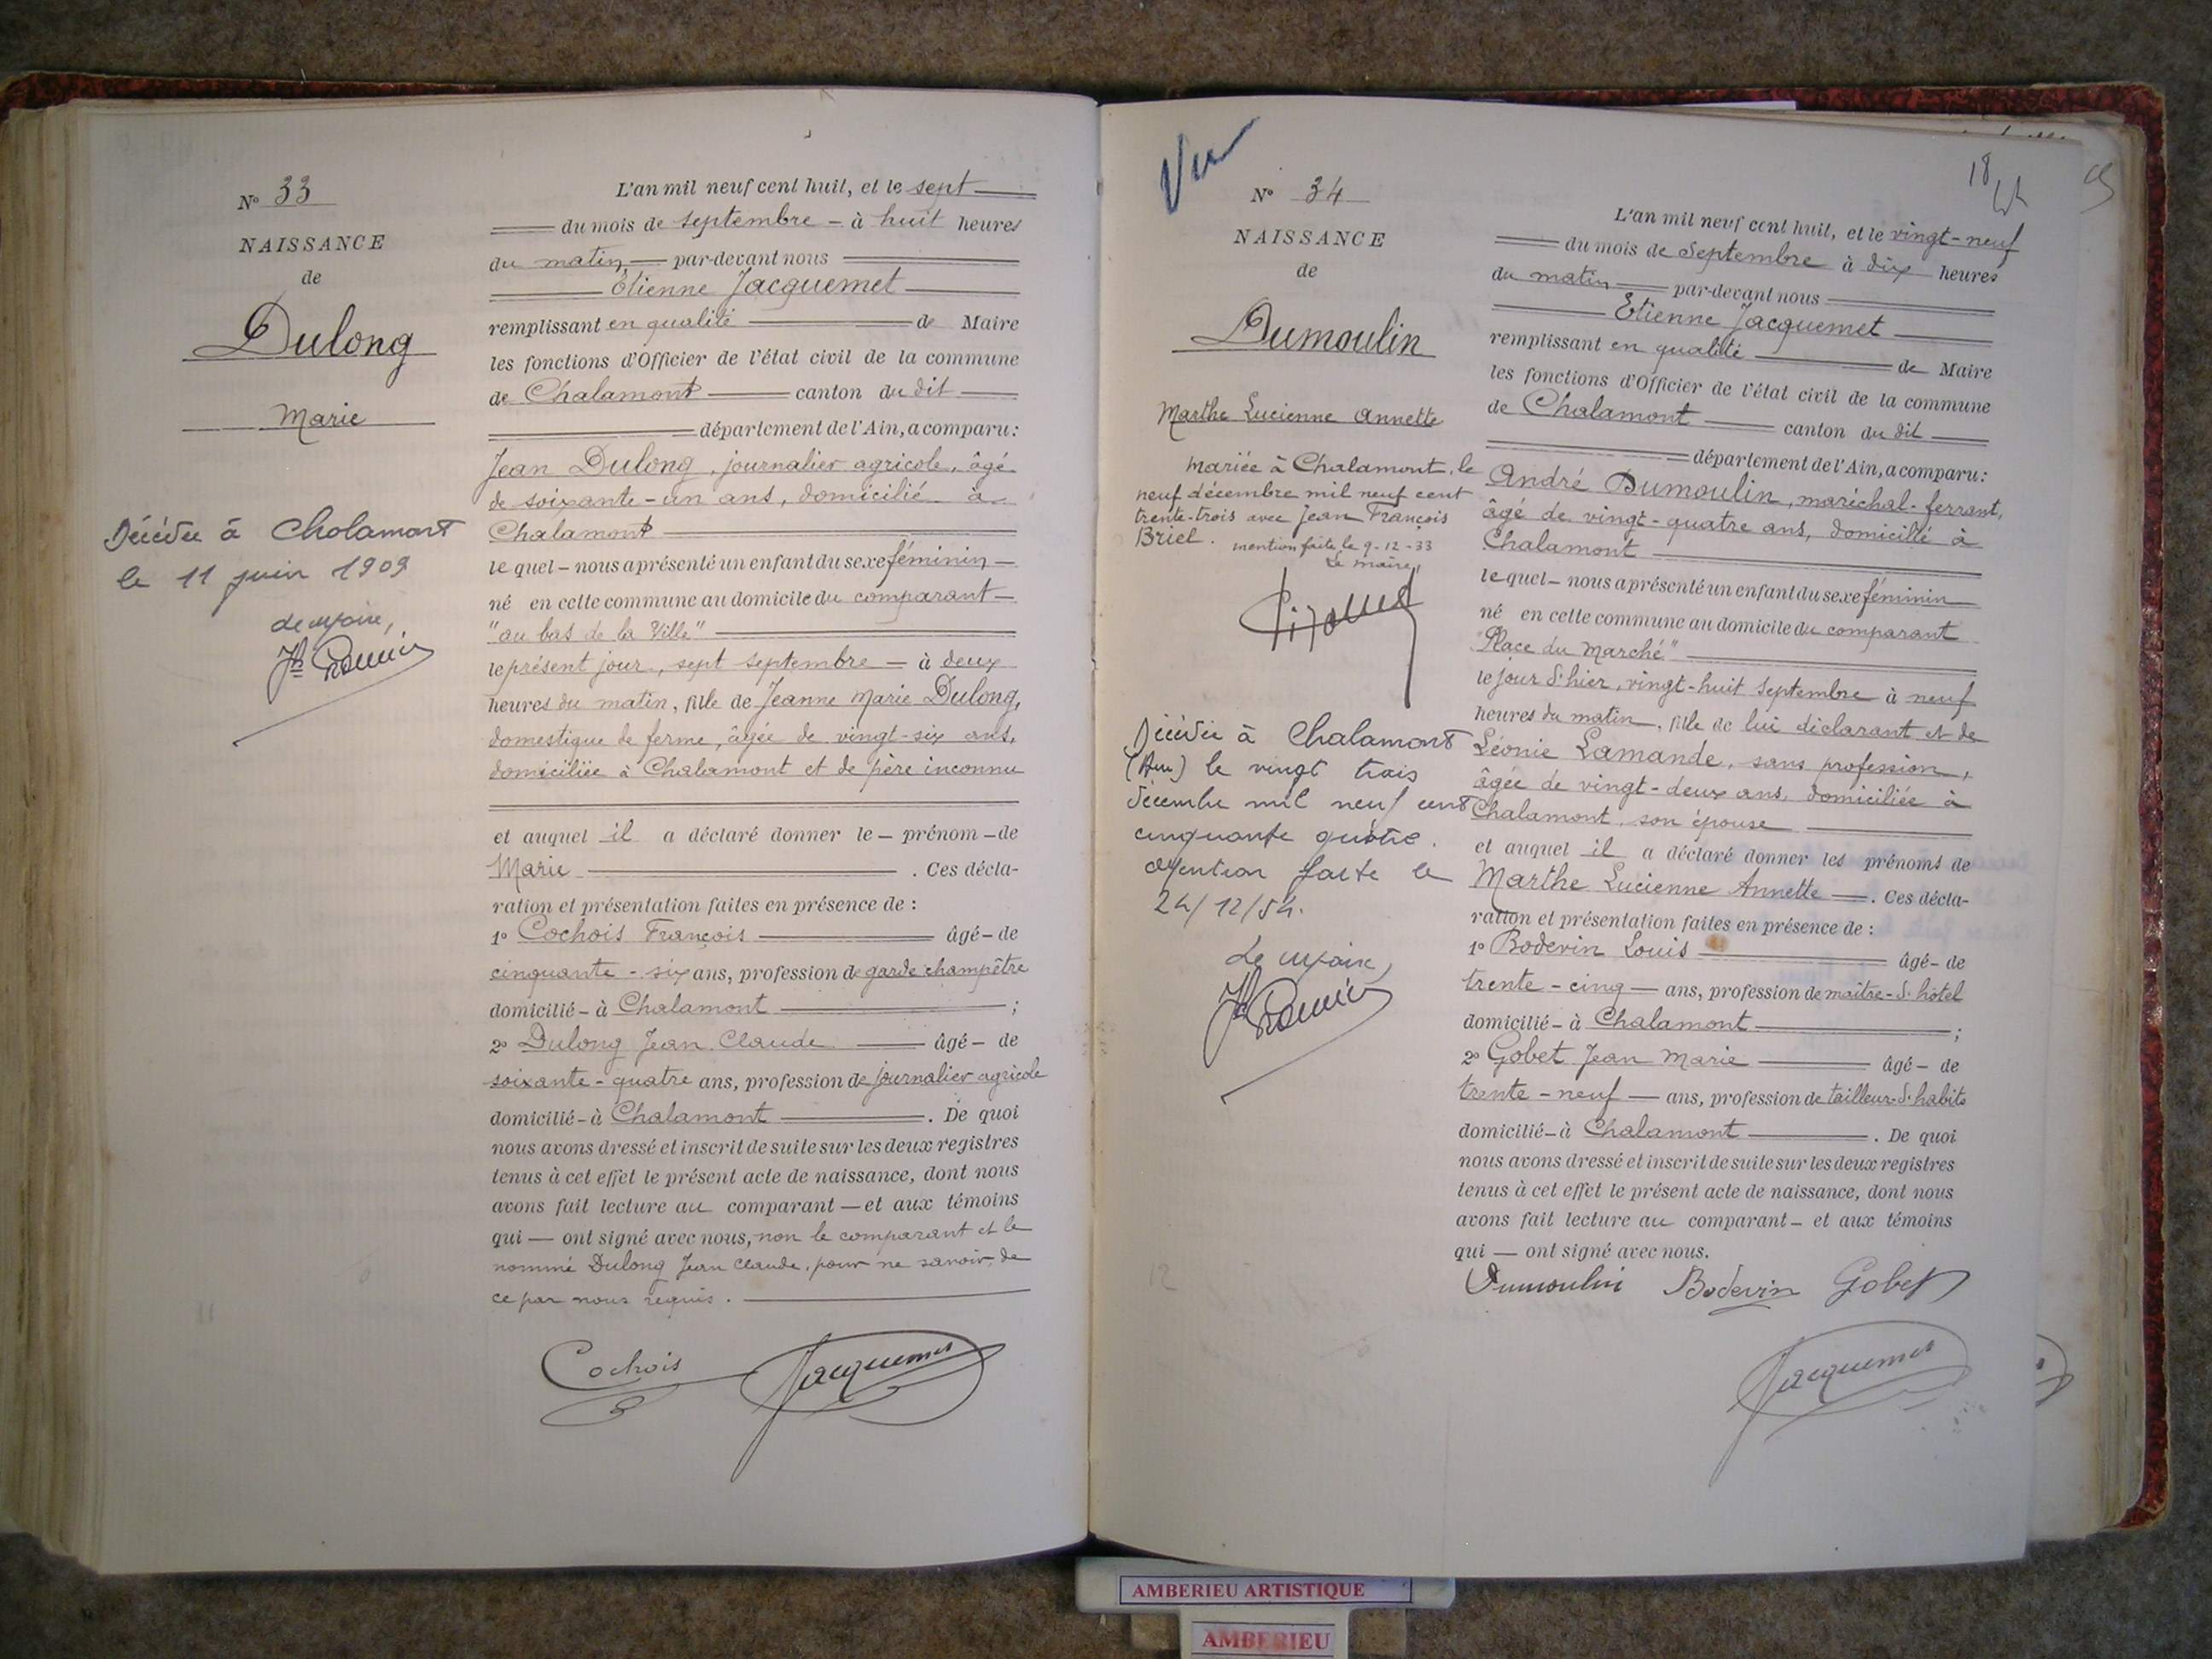 N° 33
NAISSANCE
de
Dulong
Marie
Décédée à Chalamont
le 11 juin 1909
Le Maire,
L'an mil neuf cent huit, et le sept
du mois de septembre – à huit heures
du matin – par-devant nous
Etienne Jacquemet
remplissant en qualité de Maire
les fonctions d'Officier de l'état civil de la commune
de Chalamont canton du dit
département de l'Ain, a comparu :
Jean Dulong, journalier agricole, âgé
de soixante-un ans, domicilié à
Chalamont
lequel – nous a présenté un enfant du sexe féminin –
né en cette commune au domicile du comparant –
"au bas de la Ville"
le présent jour, sept septembre – à deux
heures du matin, fille de Jeanne Marie Dulong,
domestique de ferme, âgée de vingt-six ans,
domiciliée à Chalamont et de père inconnu
et auquel il a déclaré donner le – prénom – de
Marie . Ces décla-
ration et présentation faites en présence de :
1° Cochois François âgé – de
cinquante-six ans, profession de garde champêtre
domicilié – à Chalamont ;
2° Dulong Jean Claude âgé – de
soixante-quatre ans, profession de journalier agricole
domicilié – à Chalamont . De quoi
nous avons dressé et inscrit de suite sur les deux registres
tenus à cet effet le présent acte de naissance, dont nous
avons fait lecture au comparant – et aux témoins
qui – ont signé avec nous, non le comparant et le
nommé Dulong Jean Claude, pour ne savoir, de
ce par nous requis.
Cochois Jacquemet
Vu
18
N° 34
NAISSANCE
de
Dumoulin
Marthe Lucienne Annette
Mariée à Chalamont, le
neuf décembre mil neuf cent
trente-trois avec Jean François
Briel. mention faite le 9-12-33
Le maire,
Décédée à Chalamont
(Ain) le vingt trois
décembre mil neuf cent
cinquante quatre.
Mention faite le
24/12/54.
Le Maire,
L'an mil neuf cent huit, et le vingt-neuf
du mois de Septembre à dix heures
du matin par-devant nous
Etienne Jacquemet
remplissant en qualité de Maire
les fonctions d'Officier de l'état civil de la commune
de Chalamont canton du dit
département de l'Ain, a comparu :
André Dumoulin, maréchal-ferrant,
âgé de vingt-quatre ans, domicilié à
Chalamont
lequel – nous a présenté un enfant du sexe féminin
né en cette commune au domicile du comparant
"Place du Marché"
le jour d'hier, vingt-huit septembre à neuf
heures du matin, fille de lui déclarant et de
Léonie Lamande, sans profession,
âgée de vingt-deux ans, domiciliée à
Chalamont, son épouse
et auquel il a déclaré donner les prénoms de
Marthe Lucienne Annette . Ces décla-
ration et présentation faites en présence de :
1° Bodevin Louis âgé – de
trente-cinq – ans, profession de maître-d'hôtel
domicilié – à Chalamont ;
2° Gobet Jean Marie âgé – de
trente-neuf – ans, profession de tailleur-d'habits
domicilié – à Chalamont . De quoi
nous avons dressé et inscrit de suite sur les deux registres
tenus à cet effet le présent acte de naissance, dont nous
avons fait lecture au comparant – et aux témoins
qui – ont signé avec nous.
Dumoulin Bodevin Gobet
Jacquemet
AMBERIEU ARTISTIQUE
AMBERIEU